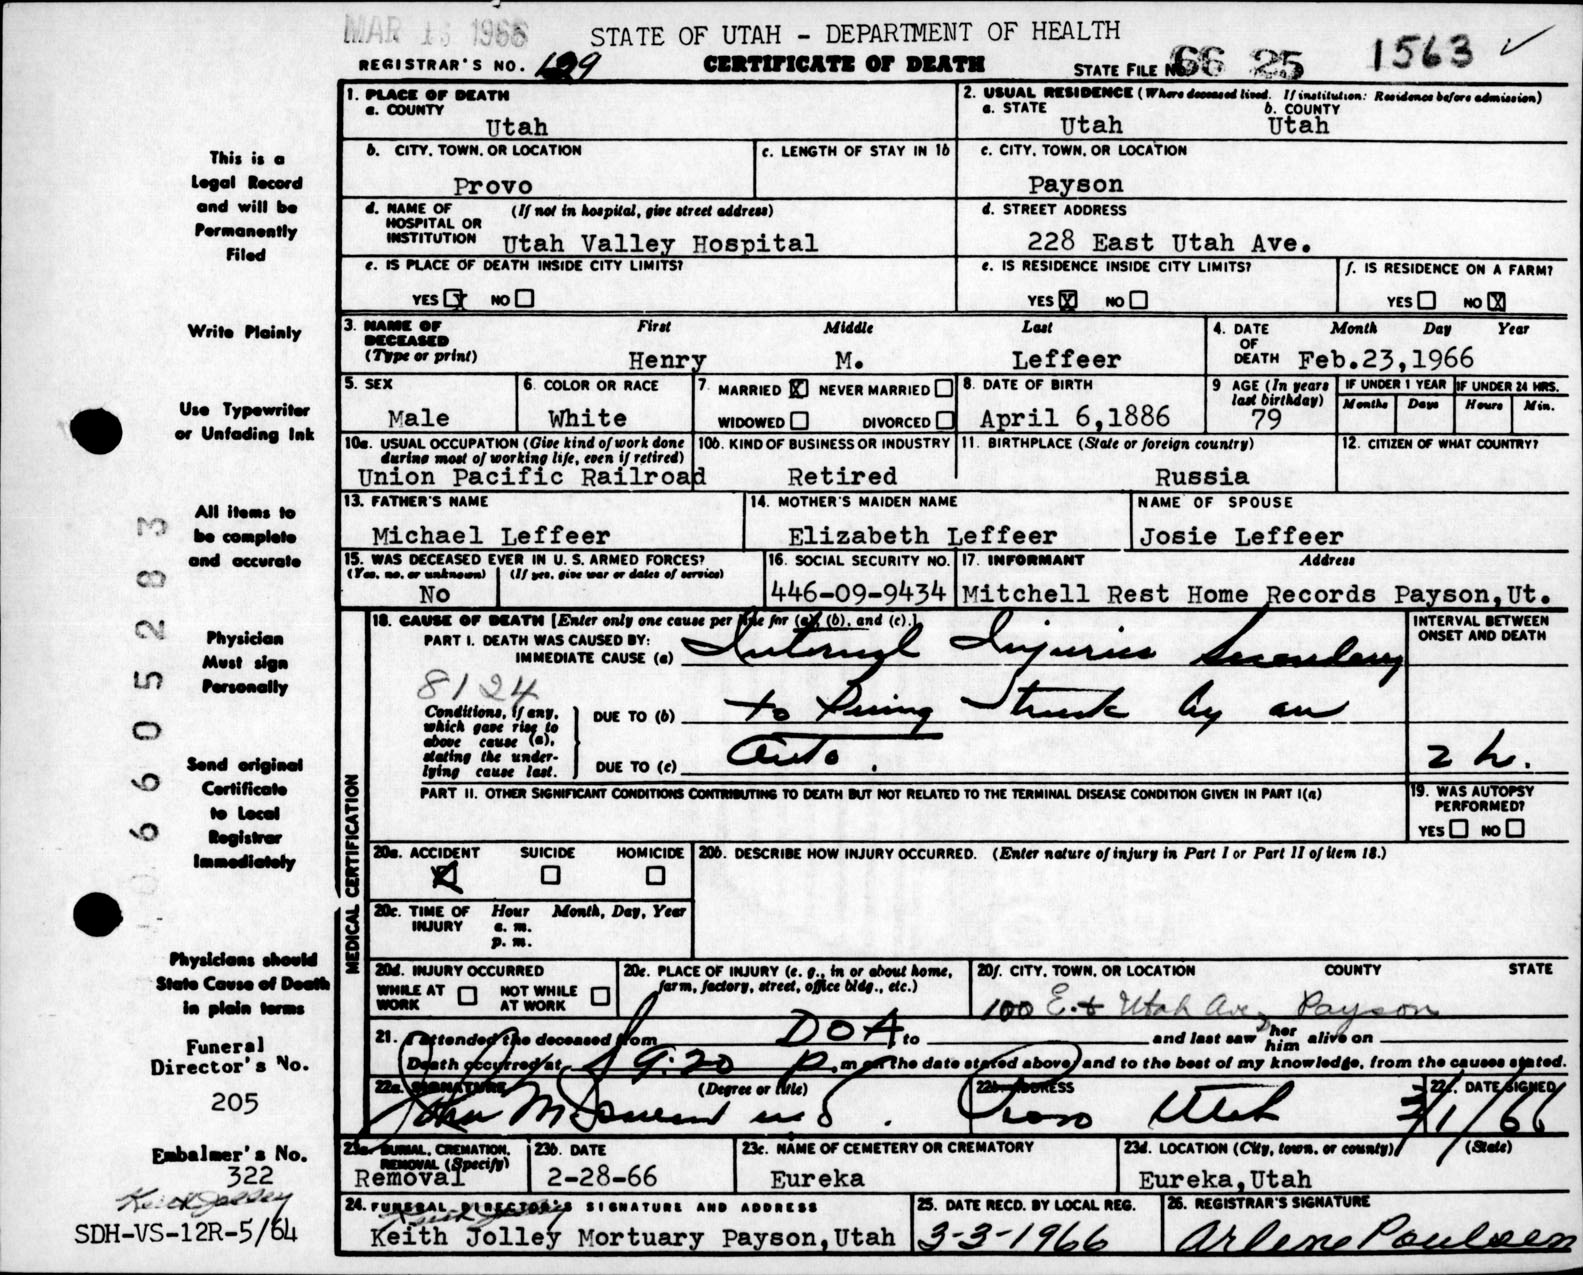 MAR 16 1966
STATE OF UTAH - DEPARTMENT OF HEALTH
REGISTRAR'S NO. 129
CERTIFICATE OF DEATH
STATE FILE NO. 66 25 1563 ✓
This is a
Legal Record
and will be
Permanently
Filed
Write Plainly
Use Typewriter
or Unfading Ink
All items to
be complete
and accurate
Physician
Must sign
Personally
Send original
Certificate
to Local
Registrar
Immediately
Physicians should
State Cause of Death
in plain terms
Funeral
Director's No.
205
Embalmer's No.
322
Keith Jolley
SDH-VS-12R-5/64
06605283
1. PLACE OF DEATH
a. COUNTY
Utah
2. USUAL RESIDENCE (Where deceased lived. If institution: Residence before admission)
a. STATE b. COUNTY
Utah Utah
b. CITY, TOWN, OR LOCATION
Provo
c. LENGTH OF STAY IN 1b
c. CITY, TOWN, OR LOCATION
Payson
d. NAME OF (If not in hospital, give street address)
HOSPITAL OR
INSTITUTION Utah Valley Hospital
d. STREET ADDRESS
228 East Utah Ave.
e. IS PLACE OF DEATH INSIDE CITY LIMITS?
YES X NO
e. IS RESIDENCE INSIDE CITY LIMITS?
YES X NO
f. IS RESIDENCE ON A FARM?
YES NO X
3. NAME OF First Middle Last
DECEASED
(Type or print) Henry M. Leffeer
4. DATE Month Day Year
OF
DEATH Feb.23,1966
5. SEX
Male
6. COLOR OR RACE
White
7. MARRIED X NEVER MARRIED
WIDOWED DIVORCED
8. DATE OF BIRTH
April 6,1886
9 AGE (In years
last birthday)
79
IF UNDER 1 YEAR
Months Days
IF UNDER 24 HRS.
Hours Min.
10a. USUAL OCCUPATION (Give kind of work done
during most of working life, even if retired)
Union Pacific Railroad
10b. KIND OF BUSINESS OR INDUSTRY
Retired
11. BIRTHPLACE (State or foreign country)
Russia
12. CITIZEN OF WHAT COUNTRY?
13. FATHER'S NAME
Michael Leffeer
14. MOTHER'S MAIDEN NAME
Elizabeth Leffeer
NAME OF SPOUSE
Josie Leffeer
15. WAS DECEASED EVER IN U. S. ARMED FORCES?
(Yes, no, or unknown) (If yes, give war or dates of service)
No
16. SOCIAL SECURITY NO.
446-09-9434
17. INFORMANT Address
Mitchell Rest Home Records Payson,Ut.
MEDICAL CERTIFICATION
18. CAUSE OF DEATH [Enter only one cause per line for (a), (b), and (c).]
PART I. DEATH WAS CAUSED BY:
IMMEDIATE CAUSE (a) Internal Injuries Secondary
8124
Conditions, if any,
which gave rise to
above cause (a),
stating the under-
lying cause last.
DUE TO (b) to being struck by an
DUE TO (c) auto.
INTERVAL BETWEEN
ONSET AND DEATH
2 h.
PART II. OTHER SIGNIFICANT CONDITIONS CONTRIBUTING TO DEATH BUT NOT RELATED TO THE TERMINAL DISEASE CONDITION GIVEN IN PART I(a)
19. WAS AUTOPSY
PERFORMED?
YES NO
20a. ACCIDENT SUICIDE HOMICIDE
X
20b. DESCRIBE HOW INJURY OCCURRED. (Enter nature of injury in Part I or Part II of item 18.)
20c. TIME OF Hour Month, Day, Year
INJURY a. m.
p. m.
20d. INJURY OCCURRED
WHILE AT WORK NOT WHILE AT WORK
20e. PLACE OF INJURY (e. g., in or about home,
farm, factory, street, office bldg., etc.)
20f. CITY, TOWN, OR LOCATION COUNTY STATE
100 E. & Utah Ave, Payson
21. I attended the deceased from DOA to and last saw her him alive on
Death occurred at 9:20 P. m on the date stated above; and to the best of my knowledge, from the causes stated.
22a. SIGNATURE (Degree or title)
John M.
22b. ADDRESS
Provo Utah
22c. DATE SIGNED
3/1/66
23a. BURIAL, CREMATION,
REMOVAL (Specify)
Removal
23b. DATE
2-28-66
23c. NAME OF CEMETERY OR CREMATORY
Eureka
23d. LOCATION (City, town, or county) (State)
Eureka,Utah
24. FUNERAL DIRECTOR'S SIGNATURE AND ADDRESS
Keith Jolley
Keith Jolley Mortuary Payson,Utah
25. DATE RECD. BY LOCAL REG.
3-3-1966
26. REGISTRAR'S SIGNATURE
Arlene Poulsen